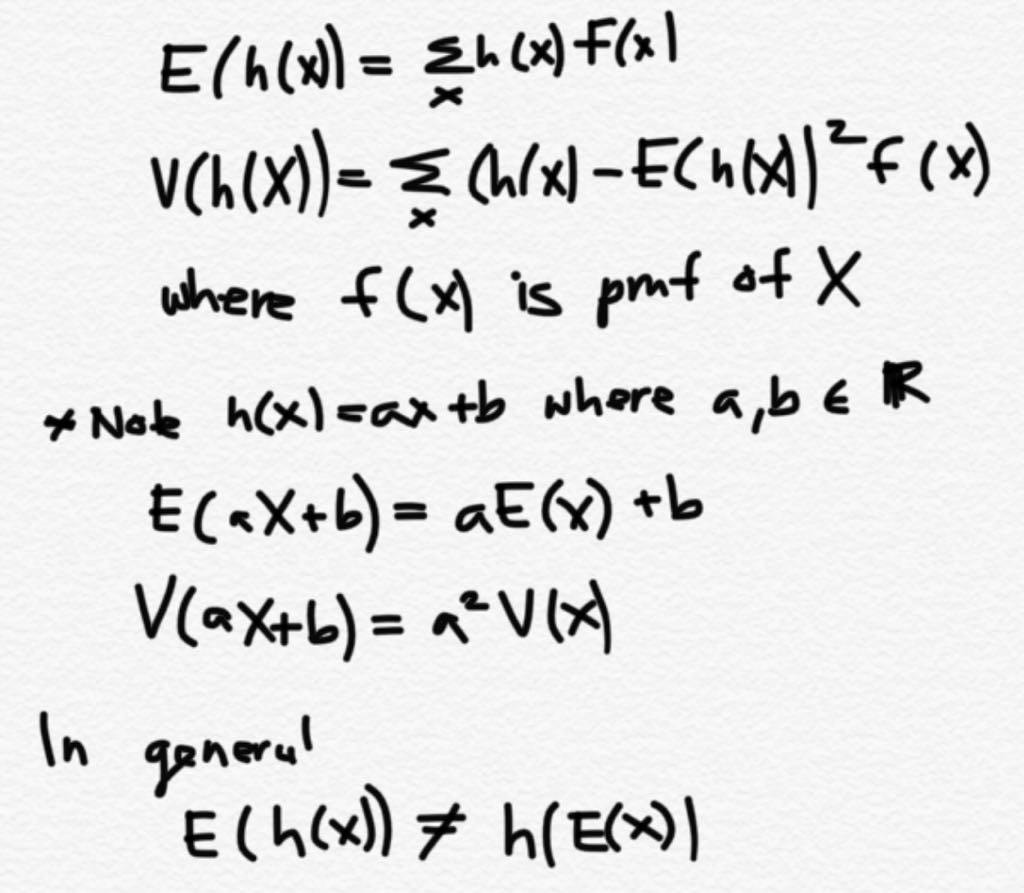 E(h(x)) = Σ_x h(x) F(x)
V(h(X)) = Σ_x (h(x) - E(h(X))² f(x)
where f(x) is pmf of X
* Note h(x) = ax + b where a, b ∈ ℝ
E(aX+b) = aE(x) + b
V(aX+b) = a² V(x)
In general
E(h(x)) ≠ h(E(x))